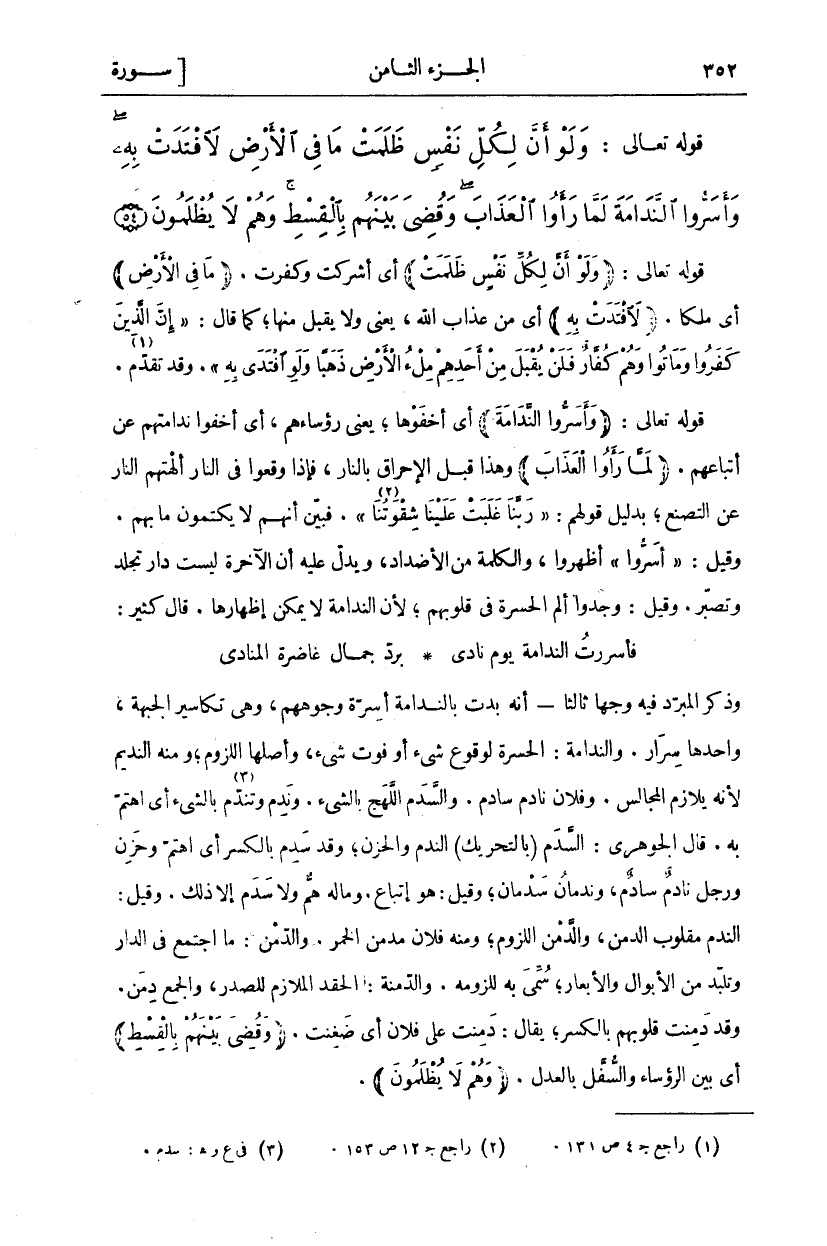 ٣٥٢ الجـــزء الثـامن [ ســـورة
قوله تعـالى : وَلَوْ أَنَّ لِكُلِّ نَفْسٍ ظَلَمَتْ مَا فِى ٱلْأَرْضِ لَٱفْتَدَتْ بِهِۦۖ
وَأَسَرُّوا ٱلنَّدَامَةَ لَمَّا رَأَوُا ٱلْعَذَابَۖ وَقُضِىَ بَيْنَهُم بِٱلْقِسْطِۚ وَهُمْ لَا يُظْلَمُونَ ﴿٥٤﴾
قوله تعالى : ﴿ وَلَوْ أَنَّ لِكُلِّ نَفْسٍ ظَلَمَتْ ﴾ أى أشركت وكفرت . ﴿ مَا فِى الْأَرْضِ ﴾
أى ملكا . ﴿ لَافْتَدَتْ بِهِ ﴾ أى من عذاب الله ، يعنى ولا يقبل منها؛ كما قال : « إِنَّ الَّذِينَ
كَفَرُوا وَمَاتُوا وَهُمْ كُفَّارٌ فَلَنْ يُقْبَلَ مِنْ أَحَدِهِمْ مِلْءُ الْأَرْضِ ذَهَبًا وَلَوِ افْتَدَى بِهِ (١) » . وقد تقدّم .
قوله تعالى : ﴿ وَأَسَرُّوا النَّدَامَةَ ﴾ أى أخفَوْها ؛ يعنى رؤساءهم ، أى أخفوا ندامتهم عن
أتباعهم . ﴿ لَمَّـا رَأَوُا الْعَذَابَ ﴾ وهذا قبـل الإحراق بالنار ، فإذا وقعوا فى النار ألهتهم النار
عن التصنع ؛ بدليل قولهم : « رَبَّنَا غَلَبَتْ عَلَيْنَا شِقْوَتُنَا (٢) » . فبيّن أنهـم لا يكتمون ما بهم .
وقيل : « أَسَرُّوا » أظهروا ، والكلمة من الأضداد، ويدلّ عليه أن الآخرة ليست دار تجلد
وتصبّر . وقيل : وجدوا ألم الحسرة فى قلوبهم ؛ لأن الندامة لا يمكن إظهارها . قال كثير :
فأسررتُ الندامة يوم نادى * بردّ جمـال غاضرة المنادى
وذكر المبرّد فيه وجها ثالثا — أنه بدت بالنـدامة أسِرّة وجوههم ، وهى تكاسير الجبهة ،
واحدها سِرَار . والندامة : الحسرة لوقوع شىء أو فوت شىء، وأصلها اللزوم؛ ومنه النديم
لأنه يلازم المجالس . وفلان نادم سادم . والسَّدَم اللَّهَج بالشىء . ونَدِم وتندّم (٣) بالشىء أى اهتمّ
به . قال الجوهرى : السَّدَم (بالتحريك) الندم والحزن؛ وقد سَدِم بالكسر أى اهتمّ وحَزِن
ورجل نادمٌ سادمٌ، وندمانُ سَدْمان؛ وقيل: هو إتباع. وماله همٌّ ولا سَدَم إلا ذلك . وقيل :
الندم مقلوب الدمن ، والدَّمْن اللزوم؛ ومنه فلان مدمن الخمر . والدِّمْن : ما اجتمع فى الدار
وتلبّد من الأبوال والأبعار؛ سُمِّىَ به للزومه . والدّمنة : الحقد الملازم للصدر، والجمع دِمَن .
وقد دَمِنت قلوبهم بالكسر؛ يقال : دَمِنت على فلان أى ضَغِنت . ﴿ وَقُضِىَ بَيْنَهُمْ بِالْقِسْطِ ﴾
أى بين الرؤساء والسُّفَّل بالعدل . ﴿ وَهُمْ لَا يُظْلَمُونَ ﴾ .
(١) راجع جـ ٤ ص ١٣١ . (٢) راجع جـ ١٢ ص ١٥٣ . (٣) فى ع و هـ : سدم .